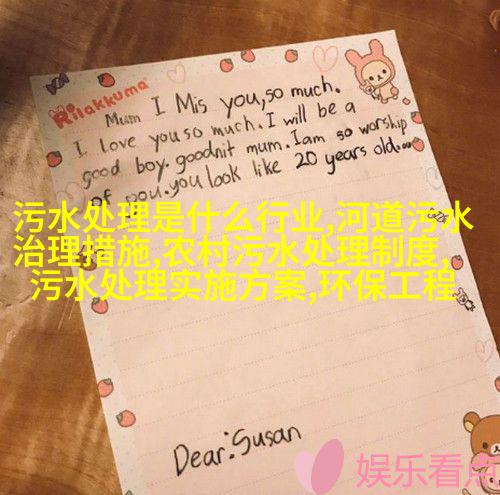 Rilakkuma
Mum I Mis you,so much.
I love you so much. I will be a
good boy. goodnit mum. I am so worship
of you. you look like 20 years old.
污水处理是什么行业,河道污水
治理措施,农村污水处理制度,
污水处理实施方案,环保工程
Dear:Susan
娱乐看点